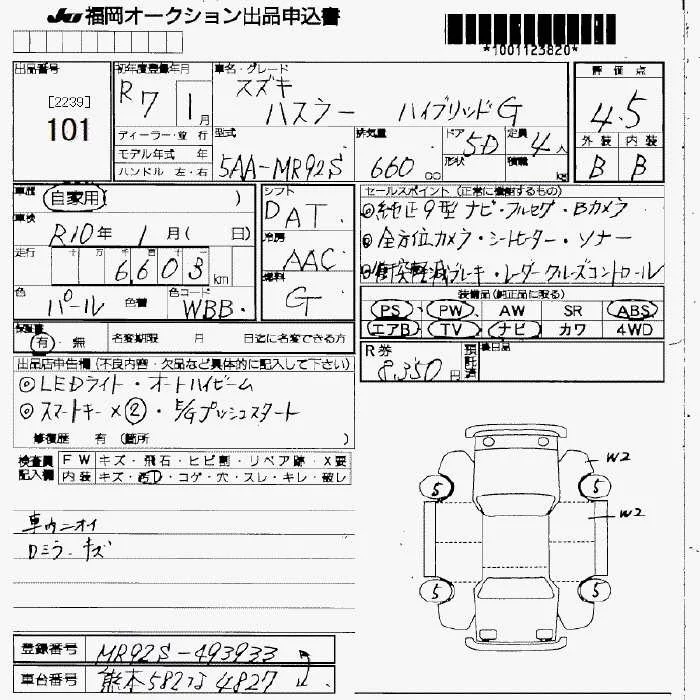 JU 福岡オークション出品申込書
*1001123820*
出品番号
[2239]
101
初年度登録年月
R7 1月
ディーラー・並行
モデル年式 年
ハンドル 左・右
車名・グレード
スズキ
ハスラー ハイブリッドG
型式
5AA-MR92S
排気量
660 cc
ドア 5D
形状
定員 4人
積載 kg
評価点
4.5
外装 内装
B B
車歴
自家用 )
車検
R10年 1月( 日)
走行
十 万 千
6,603 km
色
パール
色替
色コード
WBB
シフト
DAT
冷房
AAC
燃料
G
セールスポイント (正常に機能するもの)
◎純正9型ナビ・フルセグ・Bカメラ
◎全方位カメラ・シートヒーター・ソナー
◎衝突軽減ブレーキ・レーダークルーズコントロール
装備品(純正品に限る)
PS PW AW SR ABS
エアB TV ナビ カワ 4WD
保証書
有・無 名変期限 月 日迄に名変できる方
R券
8,350円
預託済
後日品
出品店申告欄(不良内容・欠品など具体的に記入して下さい)
◎LEDライト・オートハイビーム
◎スマートキー×②・E/Gプッシュスタート
修復歴 有(箇所 )
検査員記入欄
FW キズ・飛石・ヒビ割・リペア跡・X要
内装 キズ・汚D・コゲ・穴・スレ・キレ・破レ
車内ニオイ
Dミラーキズ
W2
W2
5 5
5 5
登録番号 MR92S-493933
車台番号 熊本582 な 4827